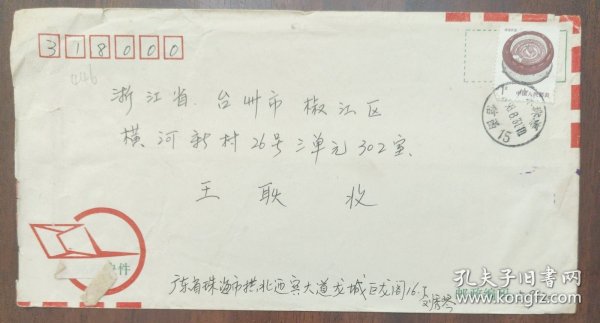 318000
浙江省.台州市椒江区
横河新村26号三单元302室.
王耿收
中国人民邮政
15
件
广东省珠海市拱北迎宾大道龙城
孔夫子旧书网
www.kongfz.com